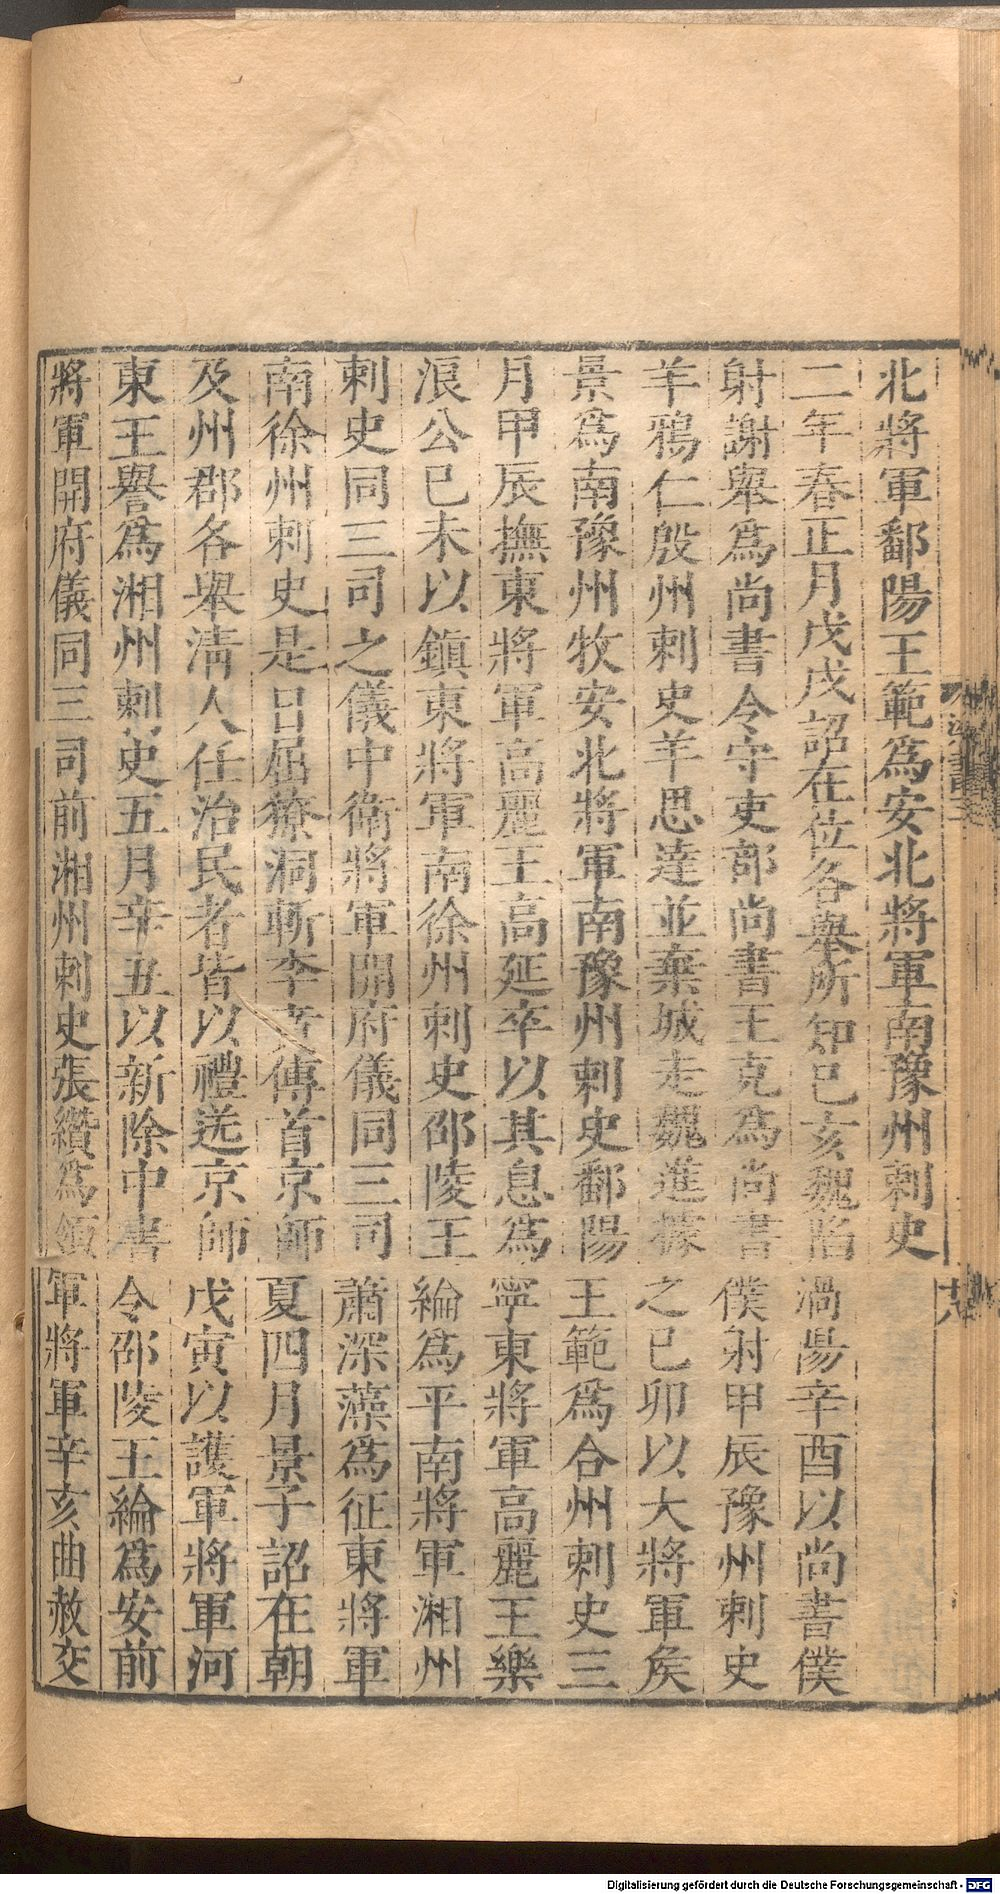 北將軍鄱陽王範為安北將軍南豫州刺史
二年春正月戊戌詔在位各舉所知已亥魏陷渦陽辛酉以尚書僕
射謝舉為尚書令守吏部尚書王克為尚書僕射甲辰豫州刺史
羊鴉仁殷州刺史羊思達並棄城走魏進據之已卯以大將軍矦
景為南豫州牧安北將軍南豫州刺史鄱陽王範為合州刺史三
月甲辰撫東將軍高麗王高延卒以其息為寧東將軍高麗王樂
浪公已未以鎮東將軍南徐州刺史邵陵王綸為平南將軍湘州
刺史同三司之儀中衛將軍開府儀同三司蕭深藻為征東將軍
南徐州刺史是日屈獠洞斬李賁傳首京師夏四月景子詔在朝
及州郡各舉淸人任治民者皆以禮送京師戊寅以護軍將軍河
東王譽為湘州刺史五月辛丑以新除中書令邵陵王綸為安前
將軍開府儀同三司前湘州刺史張纘為領軍將軍辛亥曲赦交
梁書三
十八
Digitalisierung gefördert durch die Deutsche Forschungsgemeinschaft - DFG